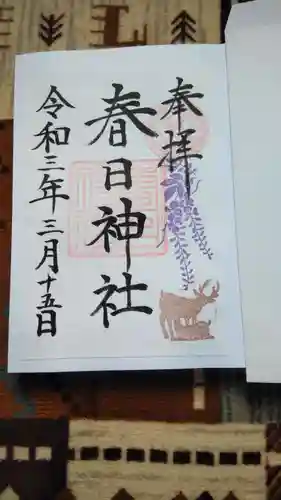 奉拝
春日神社
令和三年三月十五日